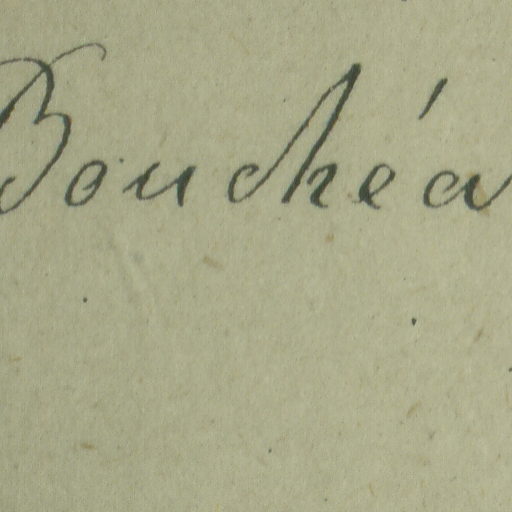 Bouchéa